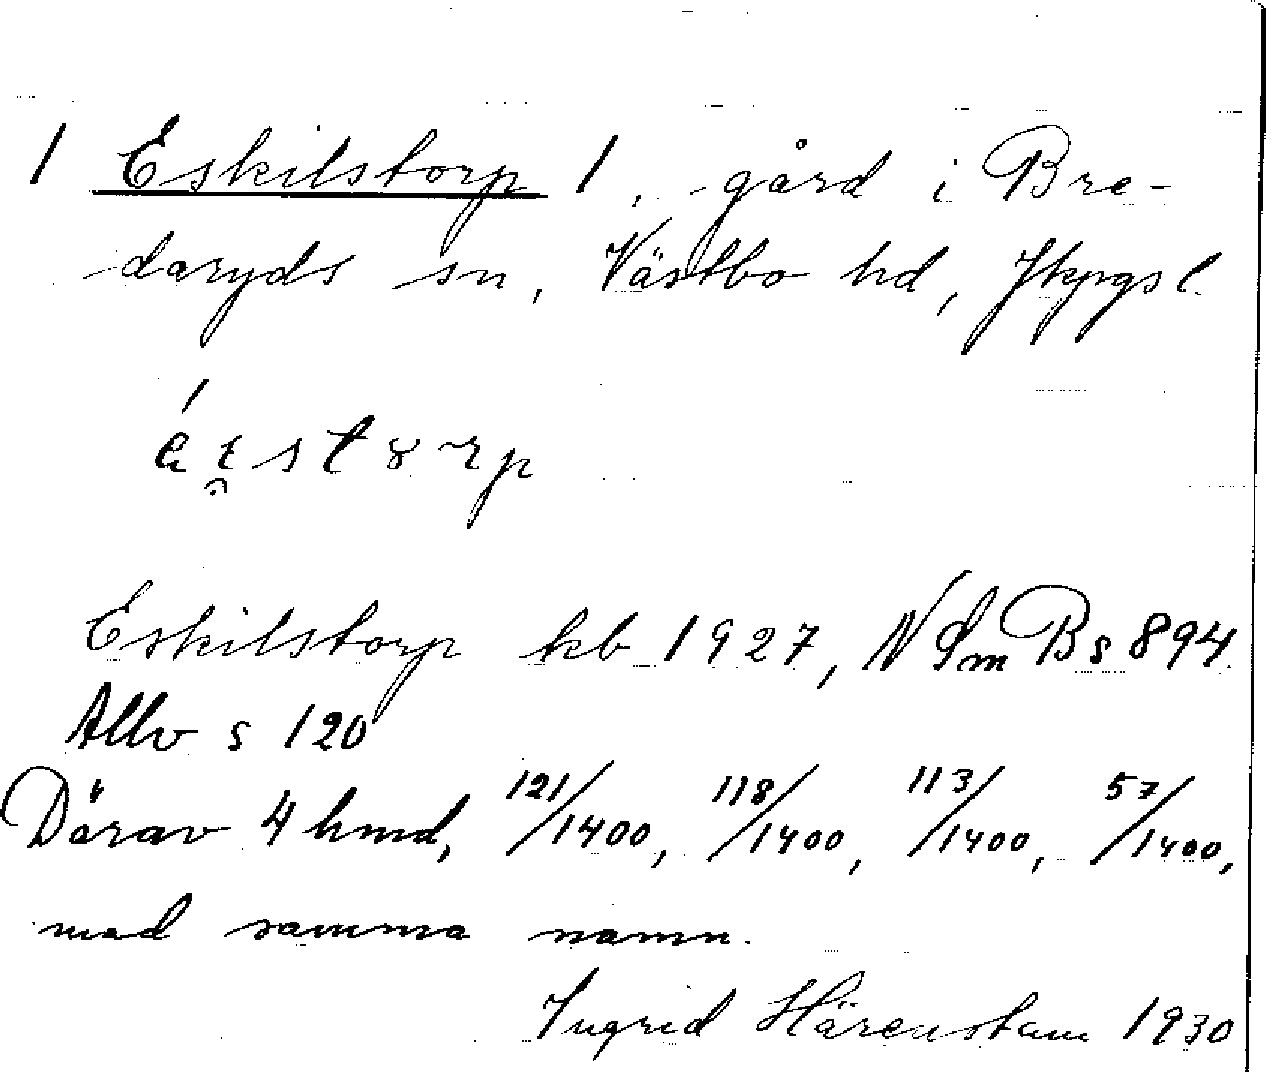 1 Eskilstorp 1, gård i Bre-
daryds sn, Västbo hd, Jkpgs l.
Eskilstorp kb 1927, N Sm B s 894
Allv s 120
Därav 4 hmd, 121/1400, 118/1400, 113/1400, 57/1400,
med samma namn.
Ingrid Härenstam 1930